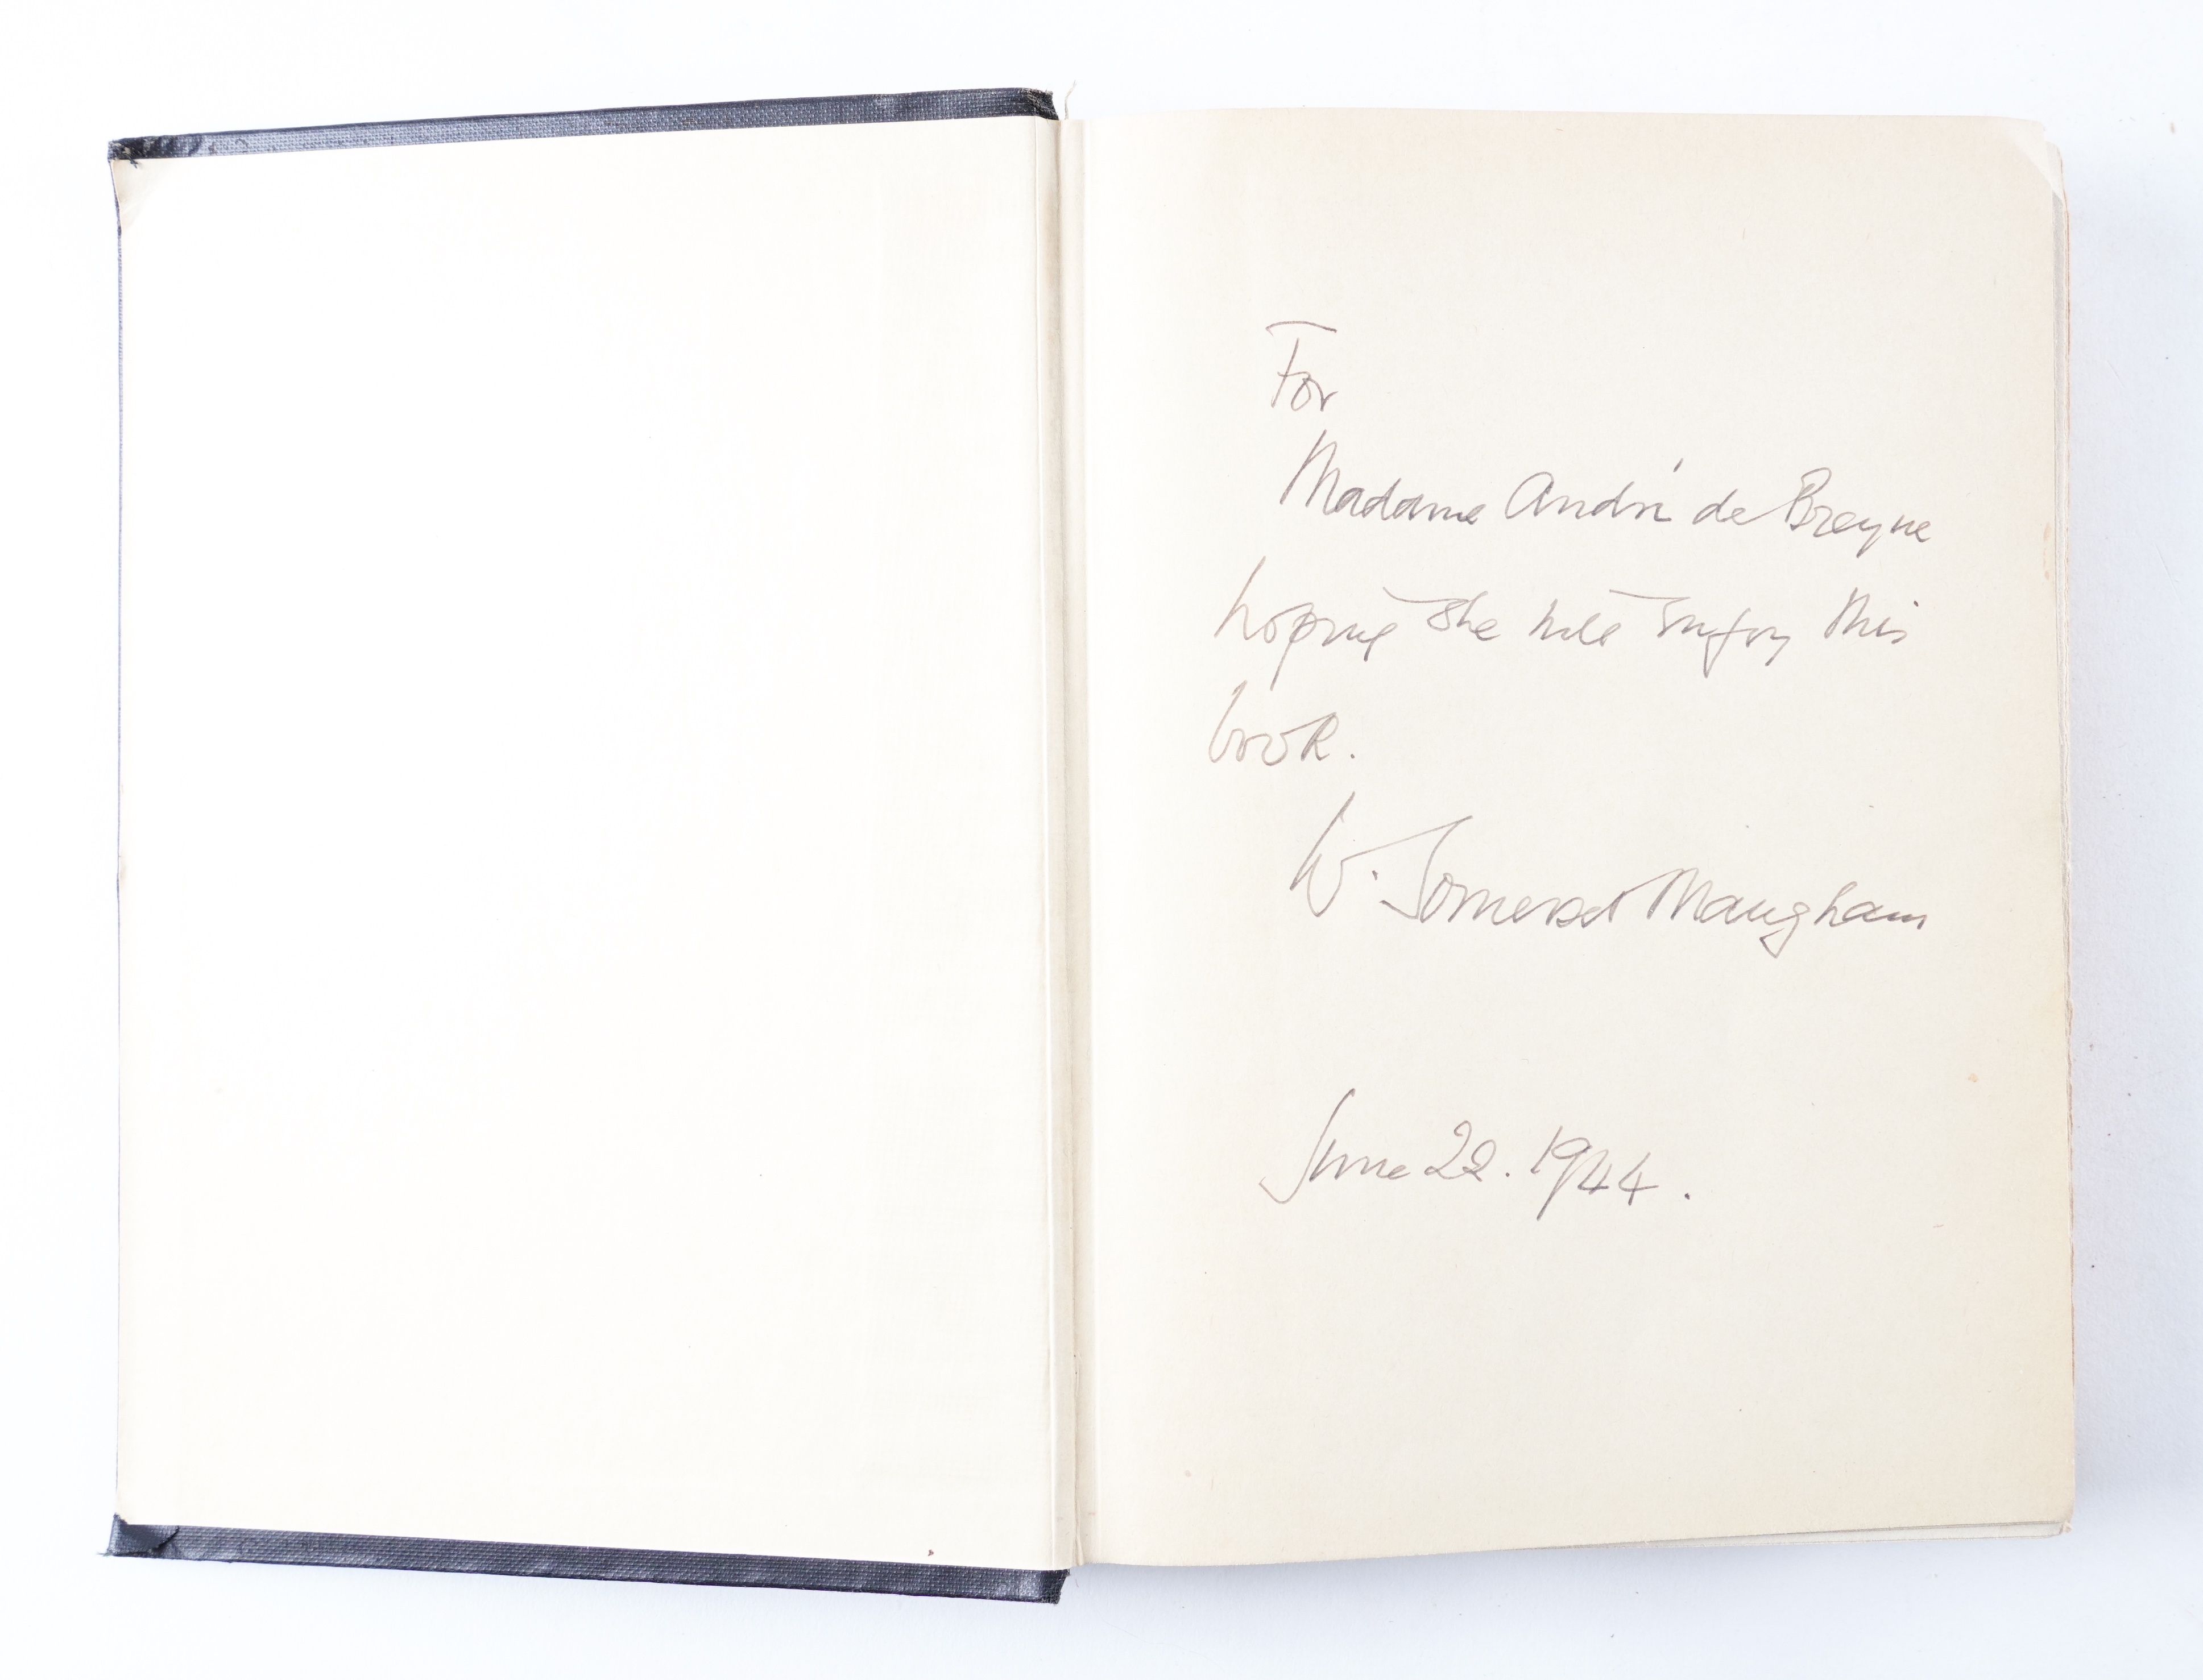 For
Madame André de Breyne
hoping she will enjoy this
book.
W. Somerset Maugham
June 22. 1944.